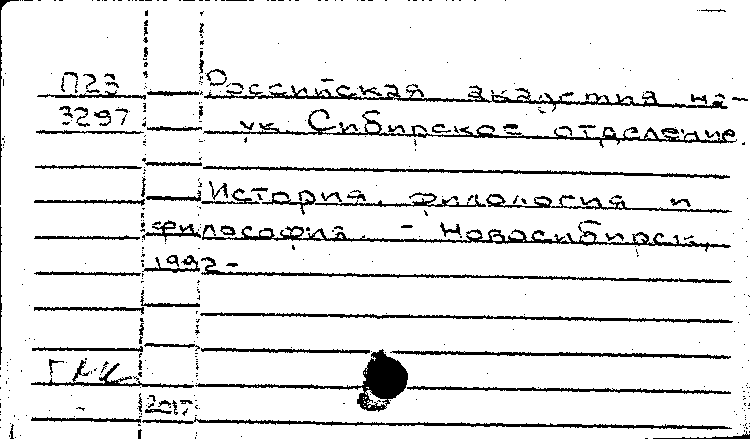 П23 Российская академия на-
3297 ук. Сибирское отделение.
История, филология и
философия. - Новосибирск,
1992-
2017